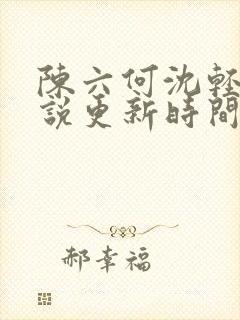 陳六何沈輕
說更新時間
郝幸福